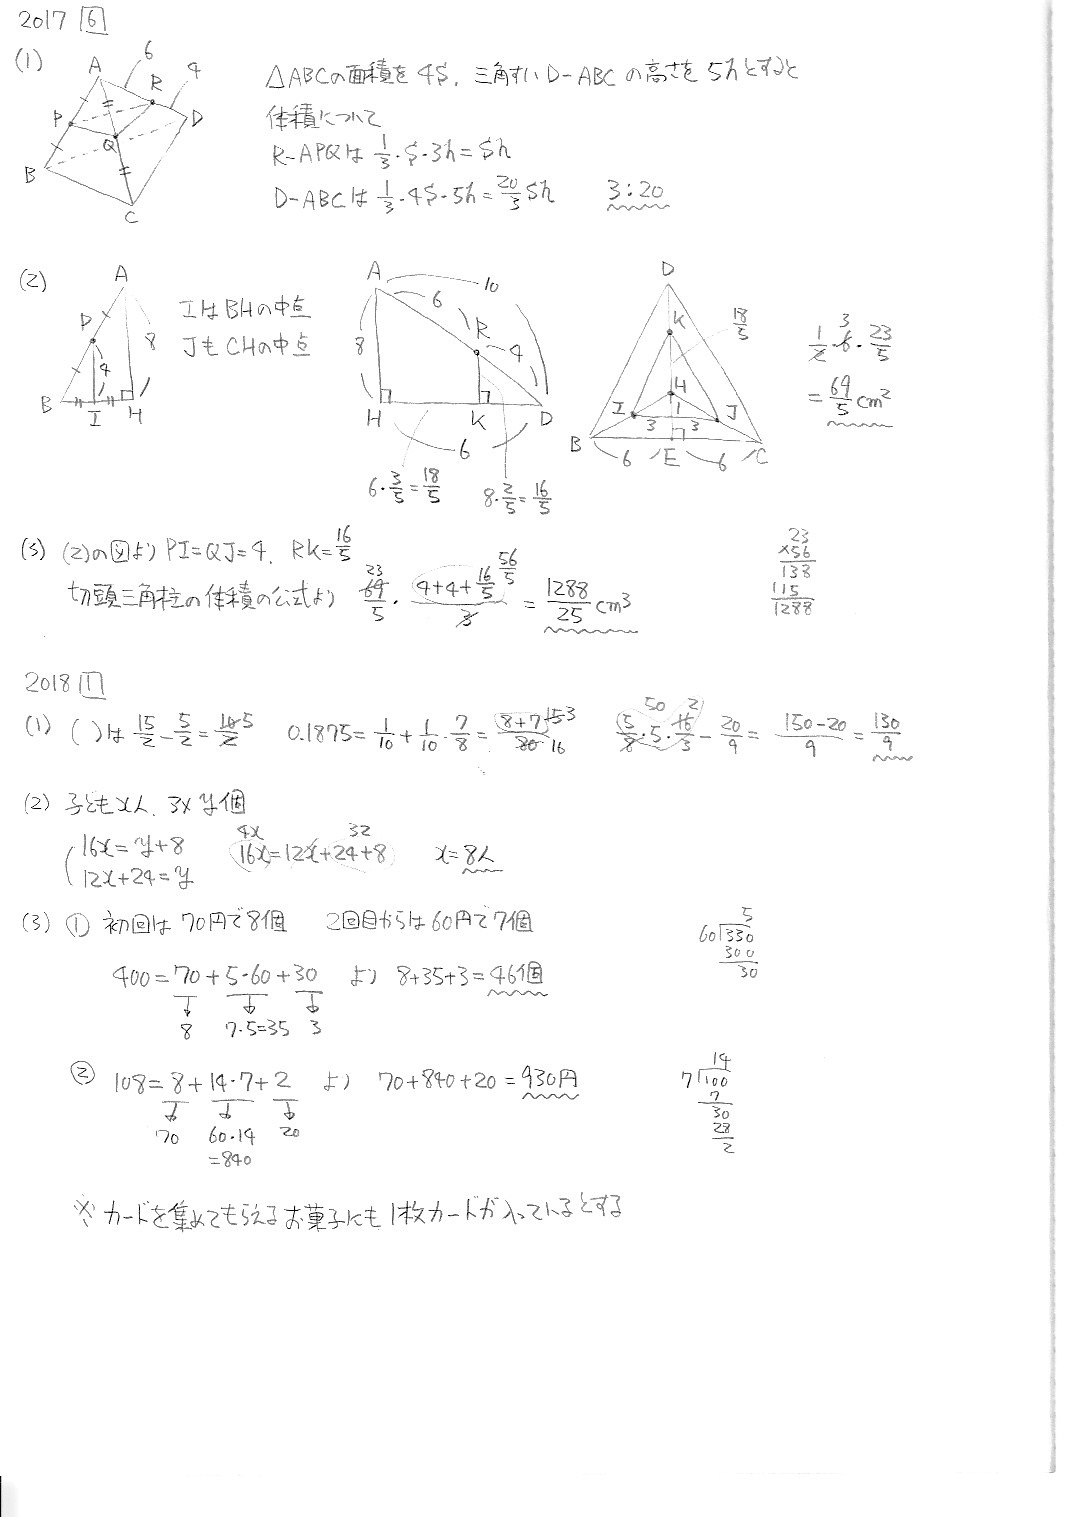 2017 6
(1)
A 6 R 4 D P Q B C
△ABCの面積を4S, 三角すいD-ABCの高さを5hとすると
体積について
R-APQは 1/3・S・3h=Sh
D-ABCは 1/3・4S・5h=20/3 Sh 3:20
(2)
A P 8 4 B I H
IはBHの中点
JもCHの中点
A 10 6 R 4 8 H K D 6
6・3/5=18/5 8・2/5=16/5
D K 18/5 H I 1 J 3 3 B 6 E 6 C
1/2・6・23/5 3
=69/5 cm²
(3) (2)の図より PI=QJ=4, RK=16/5
切頭三角柱の体積の公式より 69/5・(4+4+16/5)/3 = 1288/25 cm³
23 56/5
23
×56
138
115
1288
2018 1
(1) ( )は 15/2-5/2=10/2 5 0.1875=1/10+1/10・7/8=(8+7)/80 15 3 16 5/8・5・16/3-20/9= (150-20)/9=130/9
50 2
(2) 子どもx人, アメy個
16x=y+8 16x=12x+24+8 x=8人
4x 32
12x+24=y
(3) ① 初回は70円で8個 2回目からは60円で7個
5
60 330
300
30
400=70+5・60+30 より 8+35+3=46個
8 7・5=35 3
② 108=8+14・7+2 より 70+840+20=930円
70 60・14 20
=840
14
7 100
7
30
28
2
※カードを集めてもらえるお菓子にも1枚カードが入っているとする